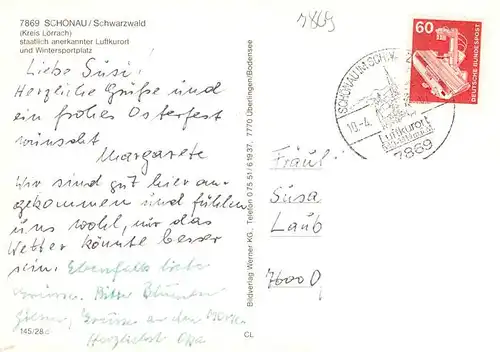 7869 SCHÖNAU/Schwarzwald
(Kreis Lörrach)
staatlich anerkannter Luftkurort
und Wintersportplatz
Liebe Susi!
Herzliche Grüße und
ein frohes Osterfest
wünscht
Margarete
Wir sind gut hier an-
gekommen und fühlen
uns wohl, nur das
Wetter könnte besser
sein. Ebenfalls liebe
Grüsse. Bitte Blumen
giesen, Grüsse an den
Herzlichst Opa
145/28
CL
Bildverlag Werner KG., Telefon 0 75 51/6 19 37, 7770 Überlingen/Bodensee
7869
60
DEUTSCHE BUNDESPOST
SCHÖNAU IM SCHW.
10.-4.
Luftkurort
7869
Fräul.
Susa
Laub
7600 O